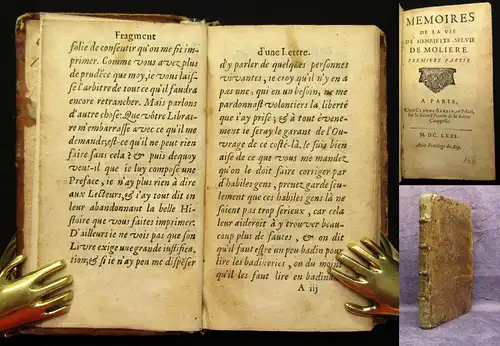 Fragment
folie de consentir qu'on me fit im-
primer. Comme vous avez plus
de prudẽce que moy, je vous lais-
se l'arbitre de tout ce qu'il faudra
encore retrancher. Mais parlons
d'autre chose: Que vôtre Librai-
re m'embarrasse avec ce qu'il me
demande; est-ce qu'il ne peut rien
faire sans cela? & puis dequoy
veut-il que je luy compose une
Preface, je n'ay plus rien à dire
aux Lecteurs, & j'ay tout dit en
leur abandonnant la belle Hi-
stoire que vous faites imprimer.
D'ailleurs je ne vois pas que son
Livre exige une grande justifica-
tion, & si je n'ay peu me dispẽser
d'une Lettre.
d'y parler de quelques personnes
vivantes, je croy qu'il n'y en a
pas une; qui en un besoin, ne me
pardonnast volontiers la liberté
que j'ay prise; & à tout évene-
ment je seray le garant de l'Ou-
vrage de ce costé-là. Je suis bien
aise de ce que vous me mandez
qu'on le doit faire corriger par
d'habiles gens, prenez garde seu-
lement que ces habiles gens là ne
soient pas trop serieux, car cela
leur aideroit à y trouver beau-
coup plus de sauces, & on dit
qu'il faut estre un peu badin pour
lire les badineries, ou du moins
qu'il les faut lire en badinant
A iij
MEMOIRES
DE LA VIE
DE HENRIETTE-SYLVIE
DE MOLIERE.
PREMIERE PARTIE.
A PARIS,
Chez CLAUDE BARBIN, au Palais,
sur le Second Perron de la Sainte
Chappelle.
M. DC. LXXI.
Avec Privilege du Roy.